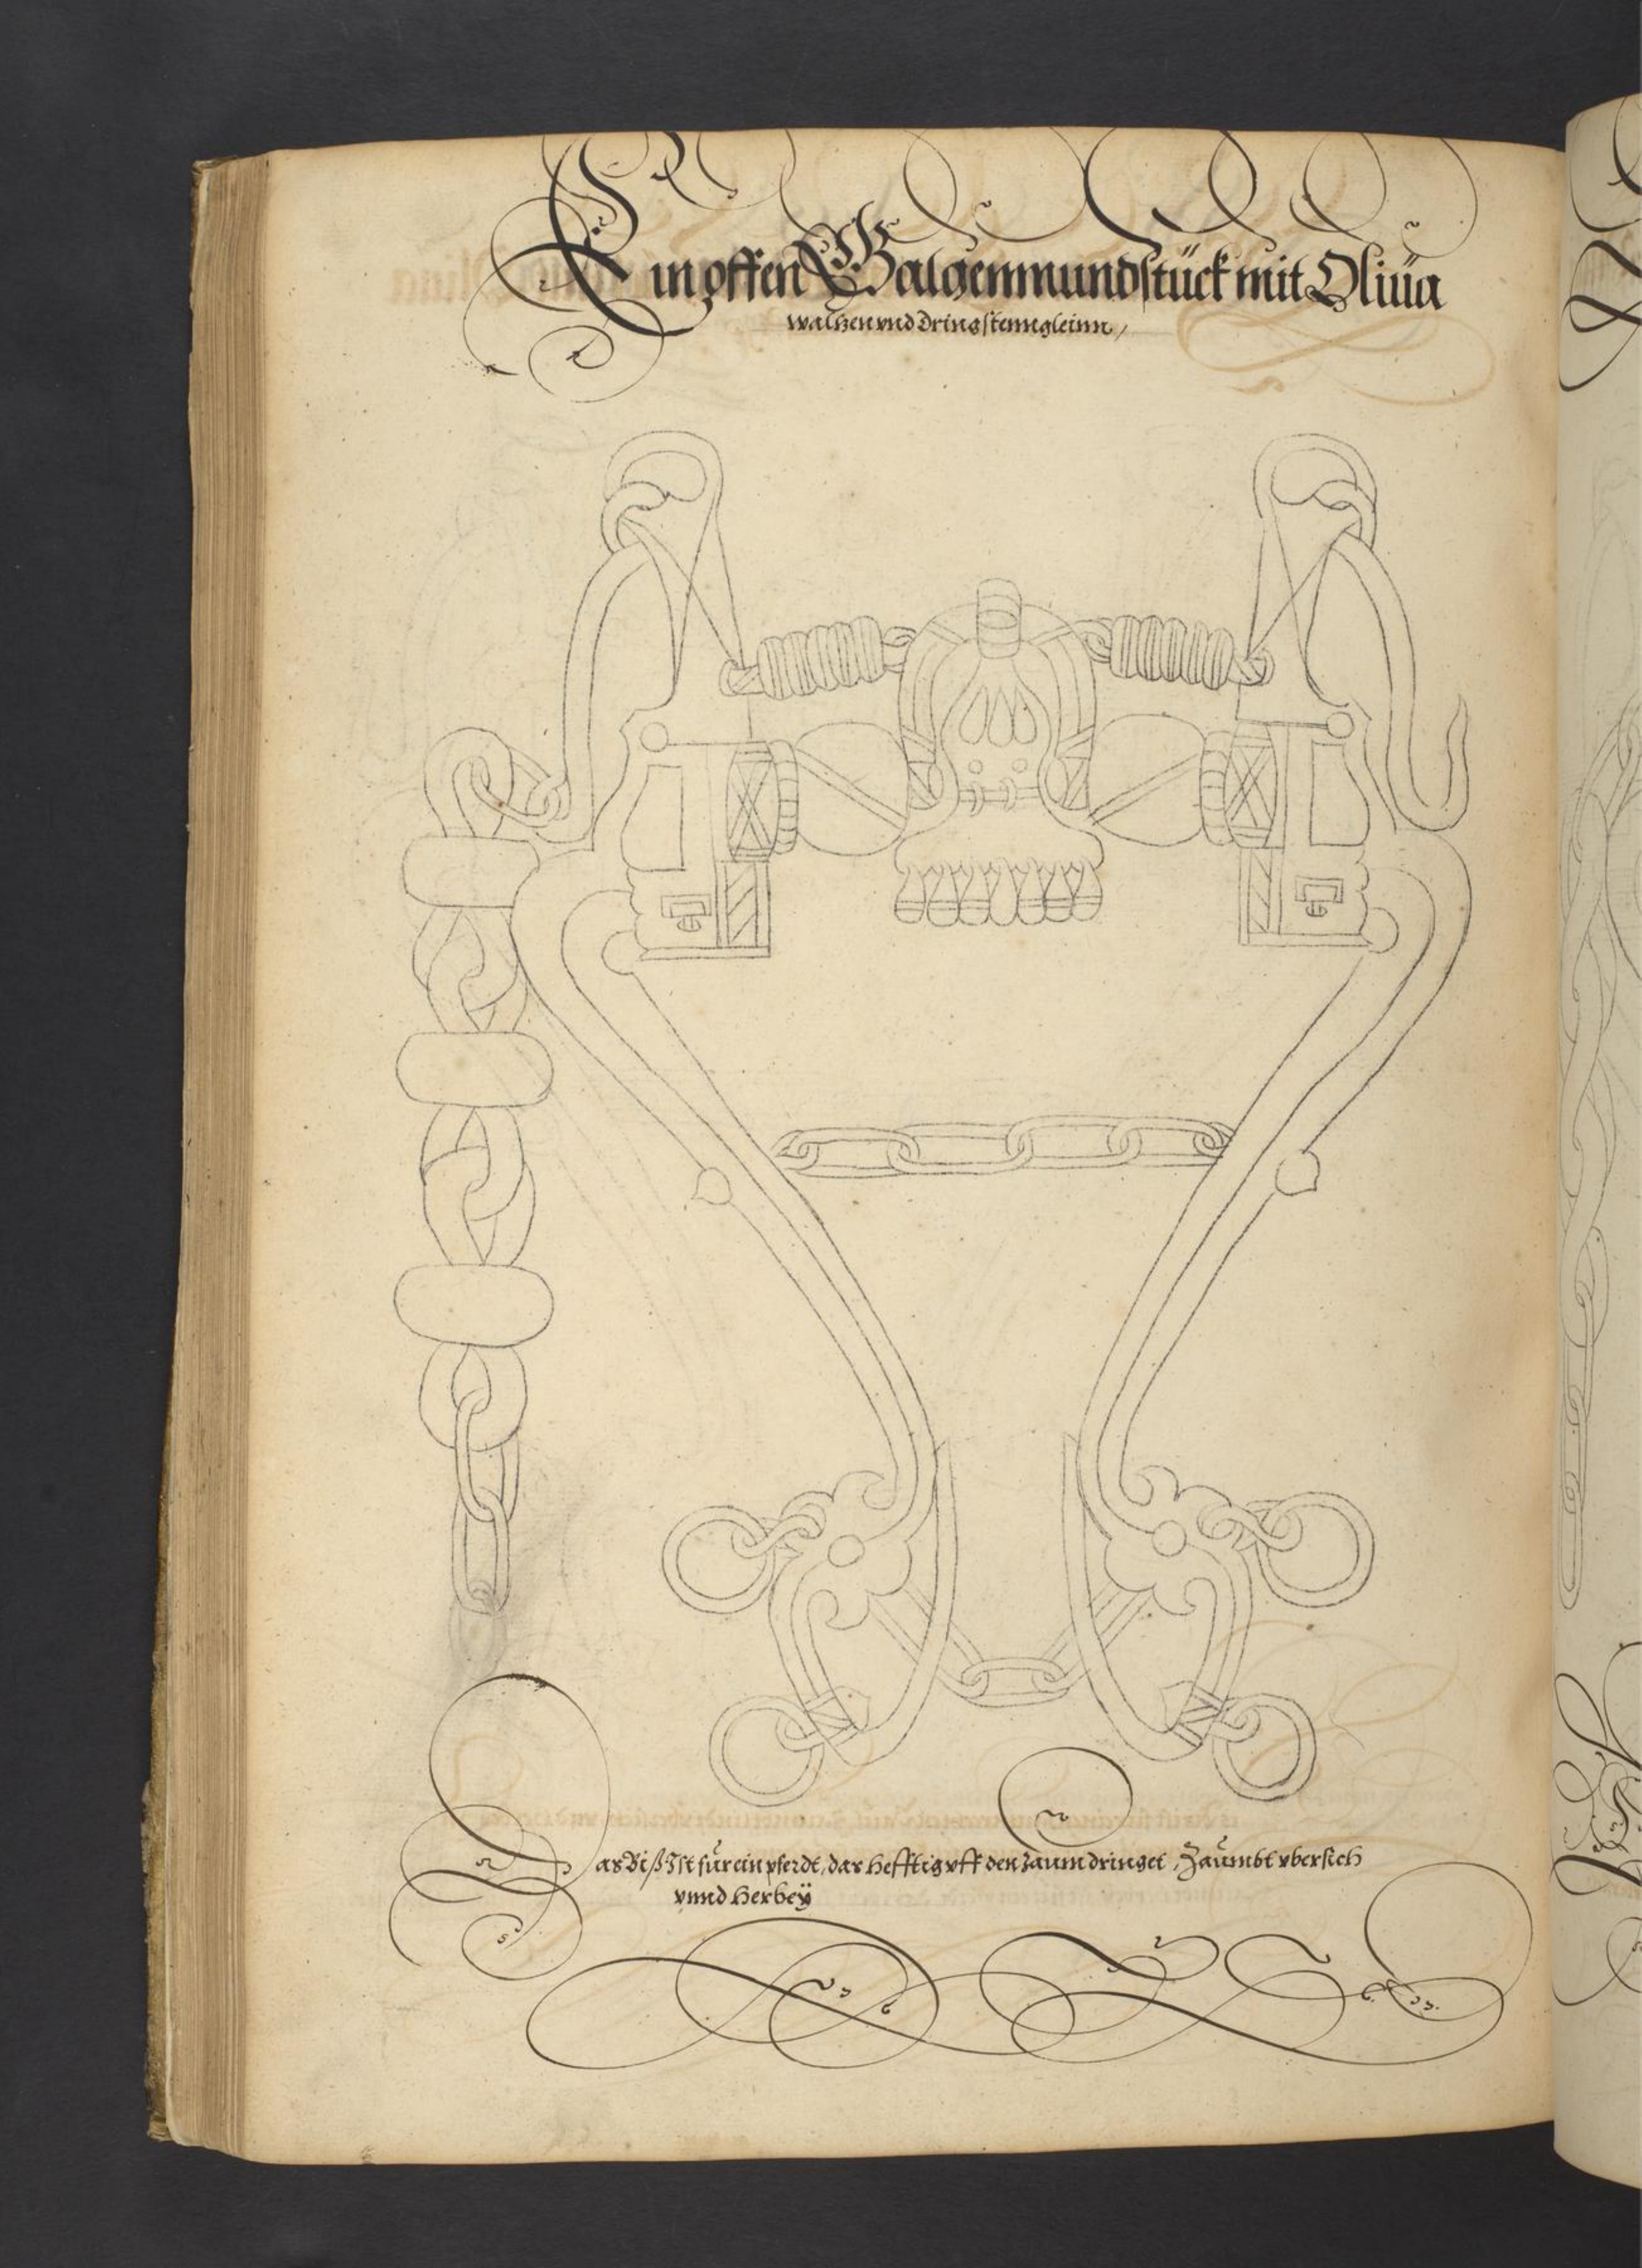 Ein offen Galgenmundstück mit Oliua
waltzen vnd Dring stenngleinn,
as Biß Ist für ein pferdt, das Hefftig vff den Zaum dringet, Zaumbt vbersich
vnnd Herbeÿ